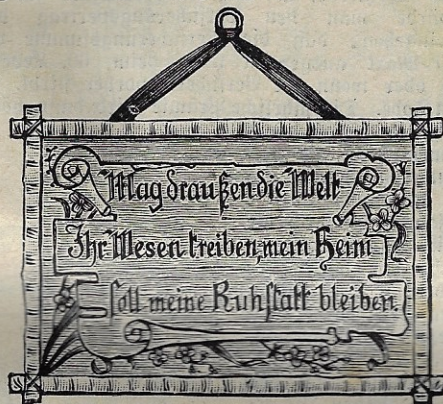 Mag draußen die Welt
Ihr Wesen treiben, mein Heim
soll meine Ruhstatt bleiben.